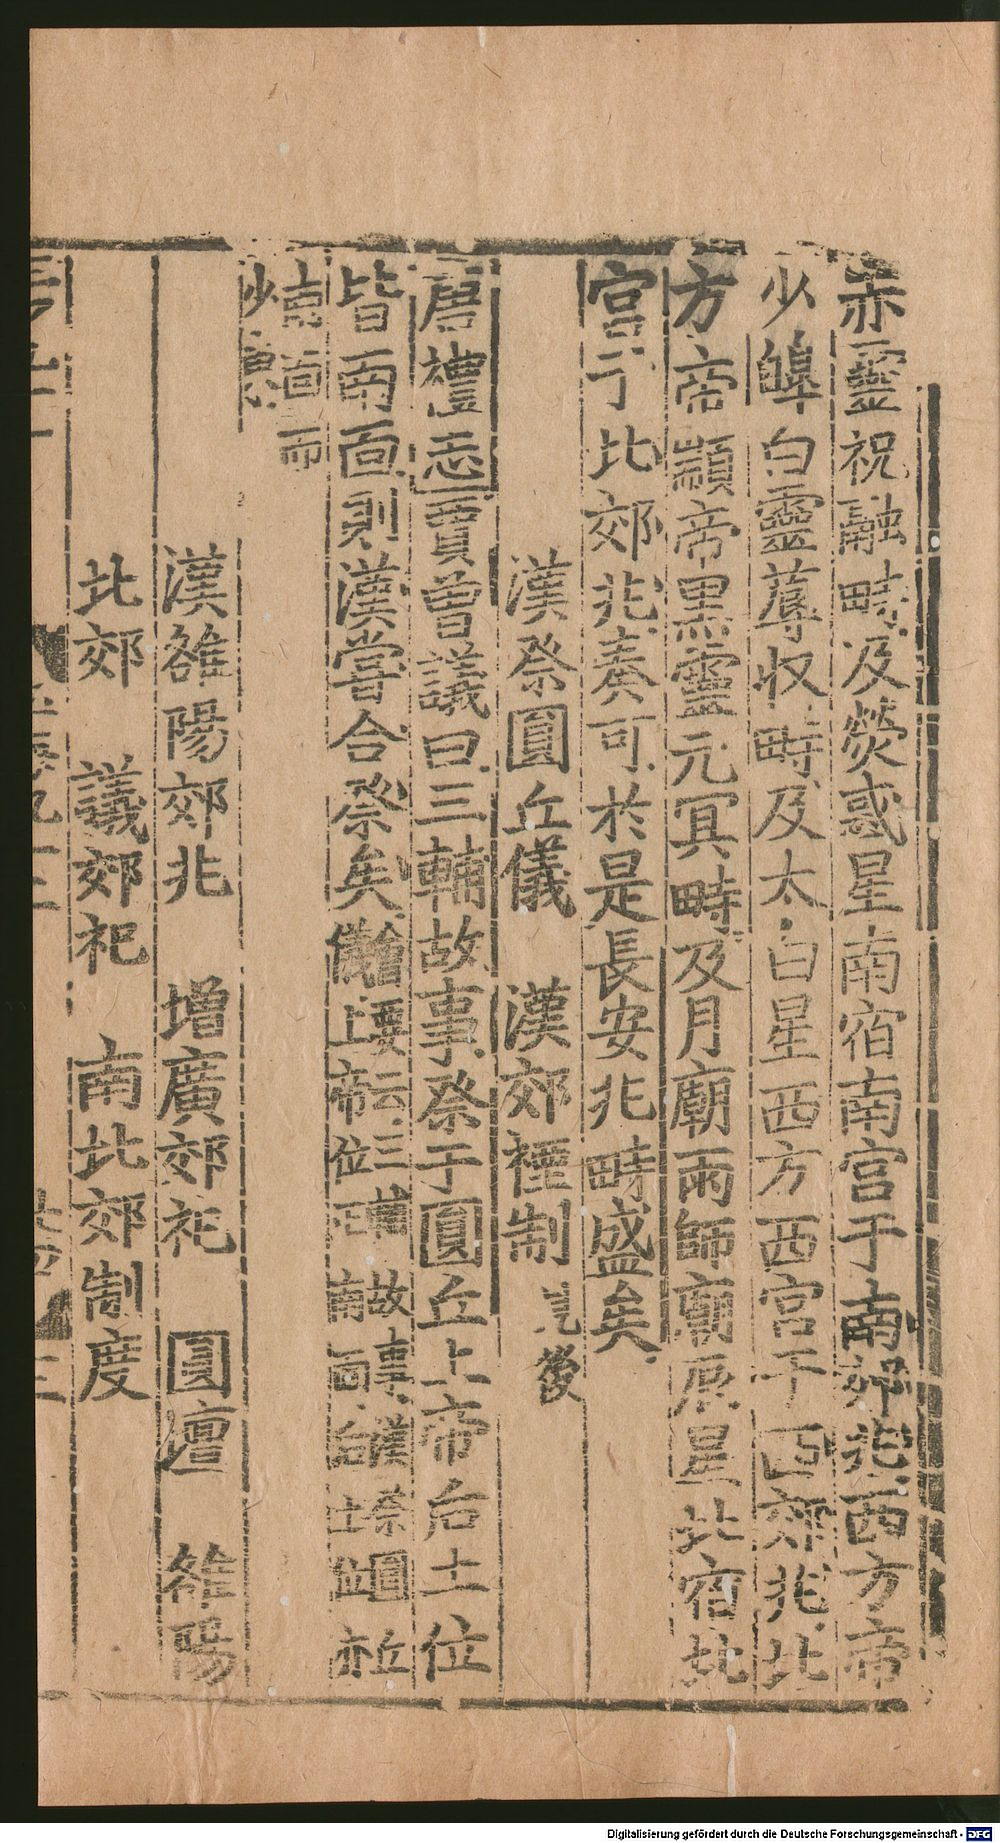 赤靈祝融畤及熒惑星南宿南宮于南郊兆西方帝
少皥白靈蓐収畤及太白星西方西宮于西郊兆北
方帝顓帝黒靈元冥畤及月廟雨師廟辰星北宿北
宮于北郊兆奏可於是長安兆畤盛矣
漢祭圓丘儀　漢郊禋制　見後
唐禮志賈曾議曰三輔故事祭于圓丘上帝后土位
皆南面則漢嘗合祭矣
會要云三輔故事漢祭圓丘
儀上帝位 南面后土位亦
南面而
少
漢雒陽郊兆　增廣郊祀　圓壇　雒陽
北郊　議郊祀　南北郊制度
Digitalisierung gefördert durch die Deutsche Forschungsgemeinschaft - DFG